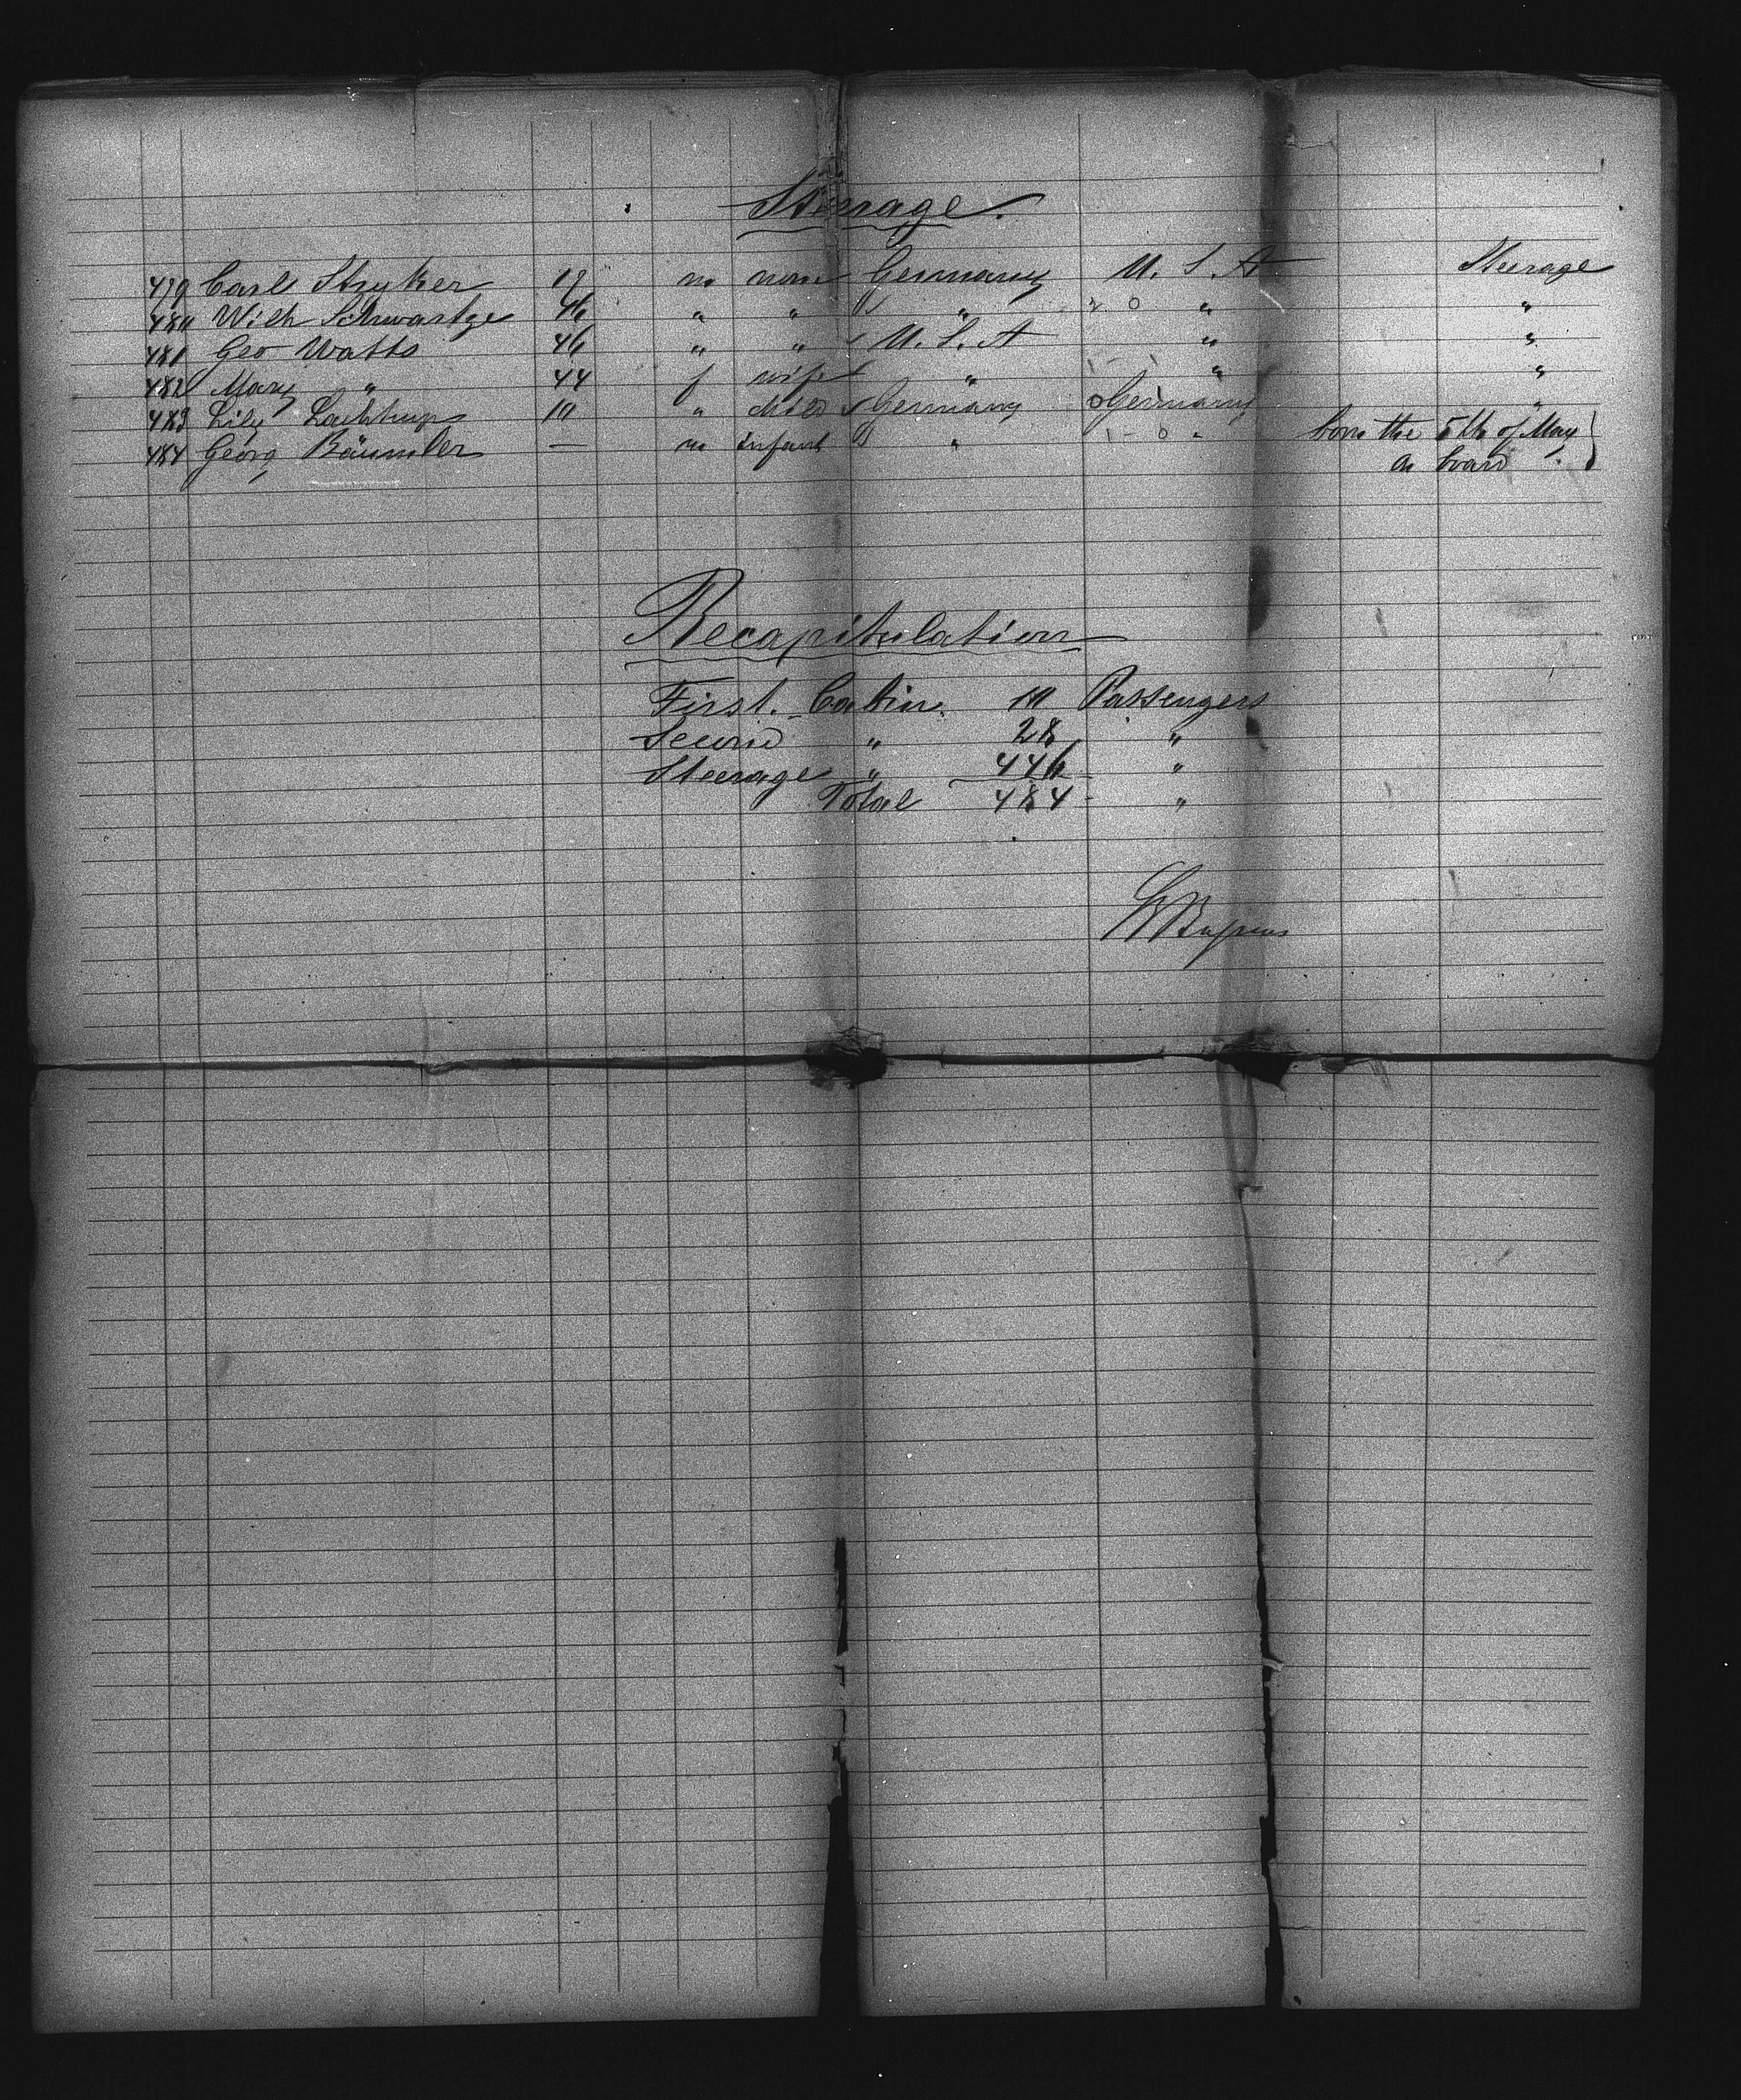 Steerage.
479 Carl Stryker 19 m none Germany U. S. A Steerage
480 Wilh Schwartze 46 " " " 20 " "
481 Geo Watts 46 " " U. S. A " "
482 Mary " 44 f wife " " "
483 Lily 10 " child Germany Germany "
484 Georg Bäumler — m infant " " born the 5th of May
on board
Recapitulation
First. Cabin. 10 Passengers
Second " 28 "
Steerage " 446 "
Total 484 "